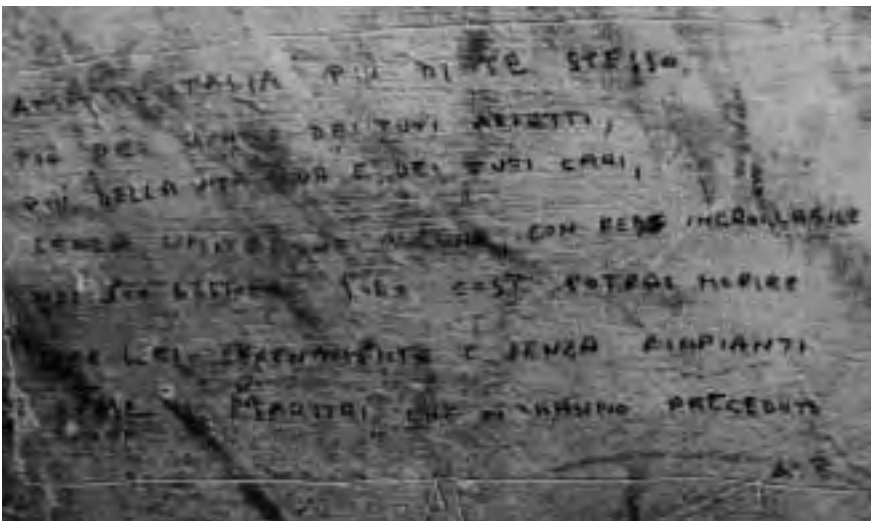 AMA L'ITALIA PIÙ DI TE STESSO,
PIÙ DEI TUOI AFFETTI,
PIÙ DELLA VITA TUA E DEI TUOI CARI,
SENZA LIMITAZIONE ALCUNA, CON FEDE INCROLLABILE
NEL SUO DESTINO. SOLO COSÌ POTRAI MORIRE
PER LEI SERENAMENTE E SENZA RIMPIANTI
COME I MARTIRI CHE TI HANNO PRECEDUTO